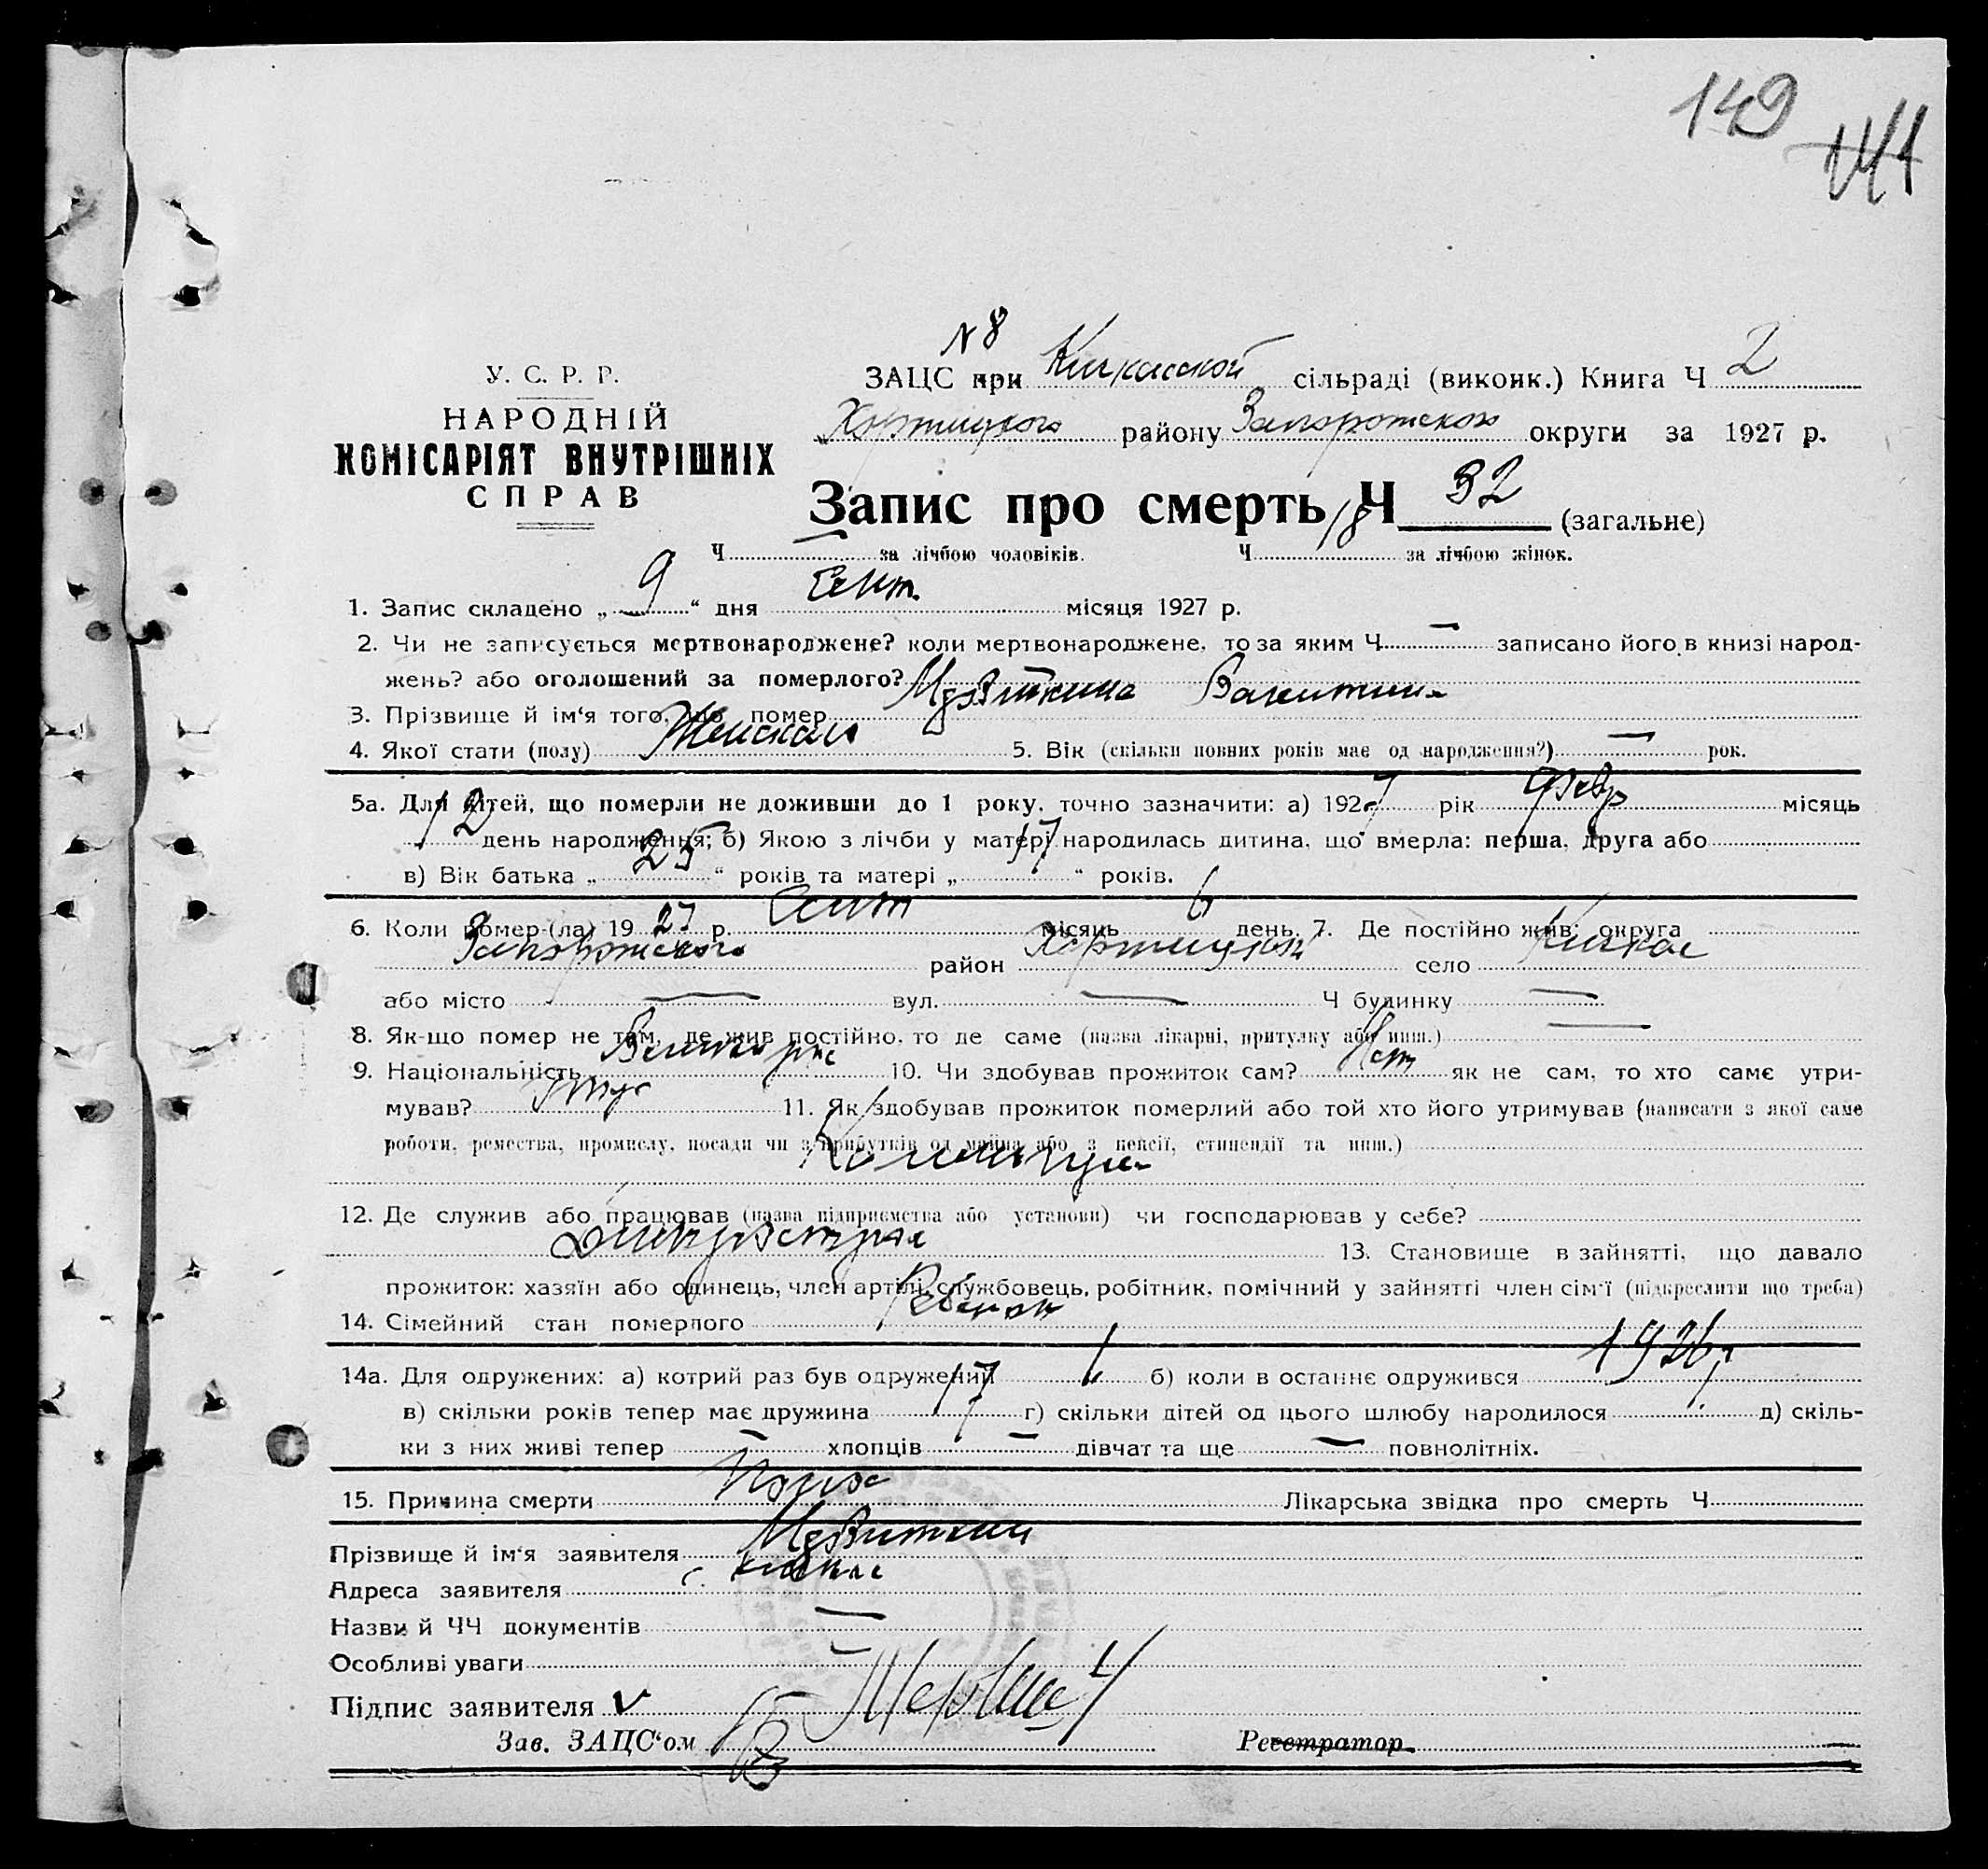 149
141
N 8
У. С. Р. Р.
НАРОДНІЙ
КОМІСАРІЯТ ВНУТРІШНІХ
СПРАВ
ЗАЦС при Кичкасской сільраді (виконк.) Книга Ч 2
Хортицкого району Запорожского округи за 1927 р.
Запис про смерть Ч 32 (загальне)
18
Ч — за лічбою чоловіків. Ч за лічбою жінок.
1. Запис складено „ 9 “ дня Сент. місяця 1927 р.
2. Чи не записується мертвонароджене? коли мертвонароджене, то за яким Ч — записано його в книзі народ-
жень? або оголошений за померлого?
3. Прізвище й ім‘я того, що помер Валентина
4. Якої стати (полу) Женская 5. Вік (скільки повних років має од народження?) — рок.
5а. Для дітей, що померли не доживши до 1 року, точно зазначити: а) 1927 рік Февр місяць
12 день народження; б) Якою з лічби у матері народилась дитина, що вмерла: перша, друга або
в) Вік батька „ 25 “ років та матері „ 17 “ років.
6. Коли помер-(ла) 1927 р. Сент місяць 6 день. 7. Де постійно жив: округа
Запорожского район Хортицкий село Кичкас
або місто — вул. — Ч будинку —
8. Як-що помер не там, де жив постійно, то де саме (назва лікарні, притулку або инш.) —
9. Національність Великорус 10. Чи здобував прожиток сам? Нет як не сам, то хто саме утри-
мував? Отец 11. Як здобував прожиток померлий або той хто його утримував (написати з якої саме
роботи, ремества, промислу, посади чи з прибутків од майна або з пенсії, стипендії та инш.)
12. Де служив або працював (назва підприємства або установи) чи господарював у себе?
Днепрострой 13. Становище в зайнятті, що давало
прожиток: хазяїн або одинець, член артілі, службовець, робітник, помічний у зайнятті член сім‘ї (підкреслити що треба)
14. Сімейний стан померлого Ребенок
14а. Для одружених: а) котрий раз був одружений 1 б) коли в останнє одружився 1926 г
в) скільки років тепер має дружина 17 г) скільки дітей од цього шлюбу народилося д) скіль-
ки з них живі тепер — хлопців — дівчат та ще — повнолітніх.
15. Причина смерти Лікарська звідка про смерть Ч
Прізвище й ім‘я заявителя
Адреса заявителя с. Кичкас
Назви й ЧЧ документів —
Особливі уваги —
Підпис заявителя v
Зав. ЗАЦС‘ом Реєстратор